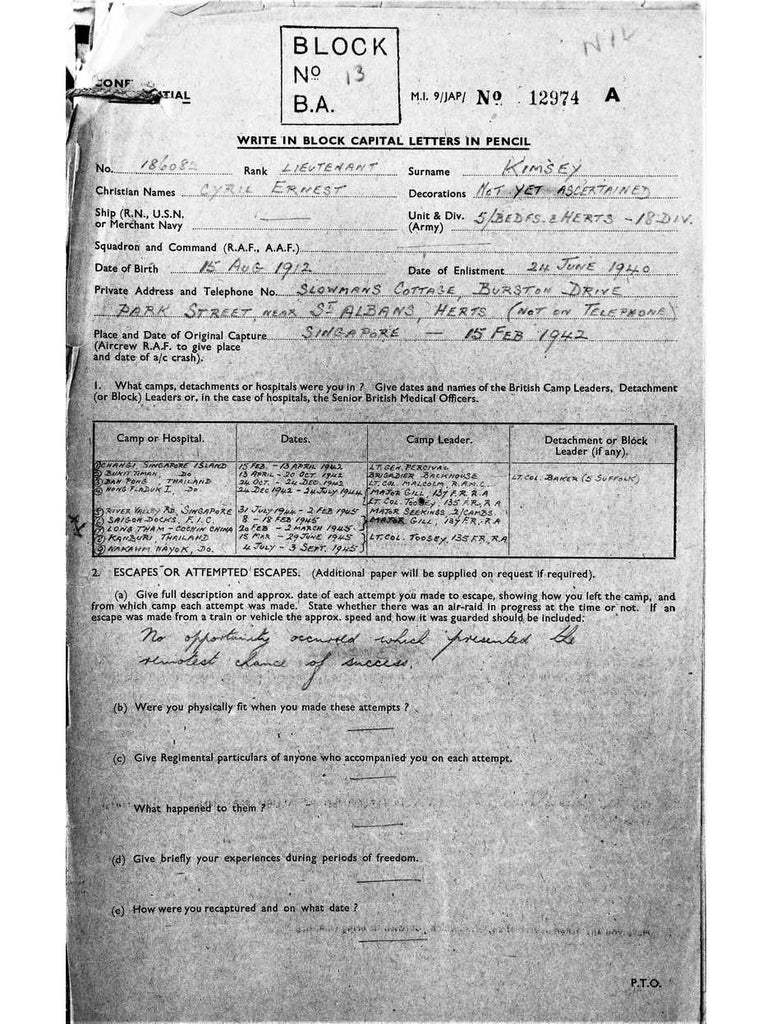 NIL
BLOCK
No 13
B.A.
CONF TIAL
M.I. 9/JAP/ No 12974 A
WRITE IN BLOCK CAPITAL LETTERS IN PENCIL
No. 186082 Rank LIEUTENANT Surname KIMSEY
Christian Names CYRIL ERNEST Decorations NOT YET ASCERTAINED
Ship (R.N., U.S.N. or Merchant Navy — Unit & Div. (Army) 5/BEDFS. & HERTS - 18 DIV.
Squadron and Command (R.A.F., A.A.F.)
Date of Birth 15 AUG 1912 Date of Enlistment 24 JUNE 1940
Private Address and Telephone No. SLOWMANS COTTAGE, BURSTON DRIVE
PARK STREET NEAR ST ALBANS, HERTS (NOT ON TELEPHONE)
Place and Date of Original Capture SINGAPORE — 15 FEB 1942
(Aircrew R.A.F. to give place
and date of a/c crash).
1. What camps, detachments or hospitals were you in ? Give dates and names of the British Camp Leaders, Detachment
(or Block) Leaders or, in the case of hospitals, the Senior British Medical Officers.
Camp or Hospital. Dates. Camp Leader. Detachment or Block Leader (if any).
① CHANGI SINGAPORE ISLAND 15 FEB. - 13 APRIL 1942 LT. GEN. PERCIVAL
② BUKIT TIMAH DO 13 APRIL - 20 OCT 1942 BRIGADIER BACKHOUSE LT. COL. BAKER (5 SUFFOLK)
③ BAN PONG, THAILAND 24 OCT. - 24 DEC. 1942 LT. COL. MALCOLM, R.A.M.C.
④ NONG PLADUK I DO 24 DEC 1942 - 24 JULY 1944 MAJOR GILL, 137 F.R. R.A
LT. COL. TOOSEY, 135 F.R, R.A
⑤ RIVER VALLEY RD, SINGAPORE 31 JULY 1944 - 2 FEB 1945 MAJOR SEEKINGS 2/CAMBS.
⑥ SAIGON DOCKS, F.I.C. 8 - 18 FEB 1945 MAJOR GILL, 137 F.R. R.A
⑦ LONG THAM - COCHIN CHINA 20 FEB - 2 MARCH 1945
KANBURI, THAILAND 15 MAR - 29 JUNE 1945 LT. COL. TOOSEY, 135 FR, RA
⑨ NAKAUM NAYOK, DO. 4 JULY - 3 SEPT. 1945
2. ESCAPES OR ATTEMPTED ESCAPES. (Additional paper will be supplied on request if required).
(a) Give full description and approx. date of each attempt you made to escape, showing how you left the camp, and
from which camp each attempt was made. State whether there was an air-raid in progress at the time or not. If an
escape was made from a train or vehicle the approx. speed and how it was guarded should be included.
No opportunity occurred which presented the
remotest chance of success.
(b) Were you physically fit when you made these attempts ?
(c) Give Regimental particulars of anyone who accompanied you on each attempt.
What happened to them ?
(d) Give briefly your experiences during periods of freedom.
(e) How were you recaptured and on what date ?
P.T.O.